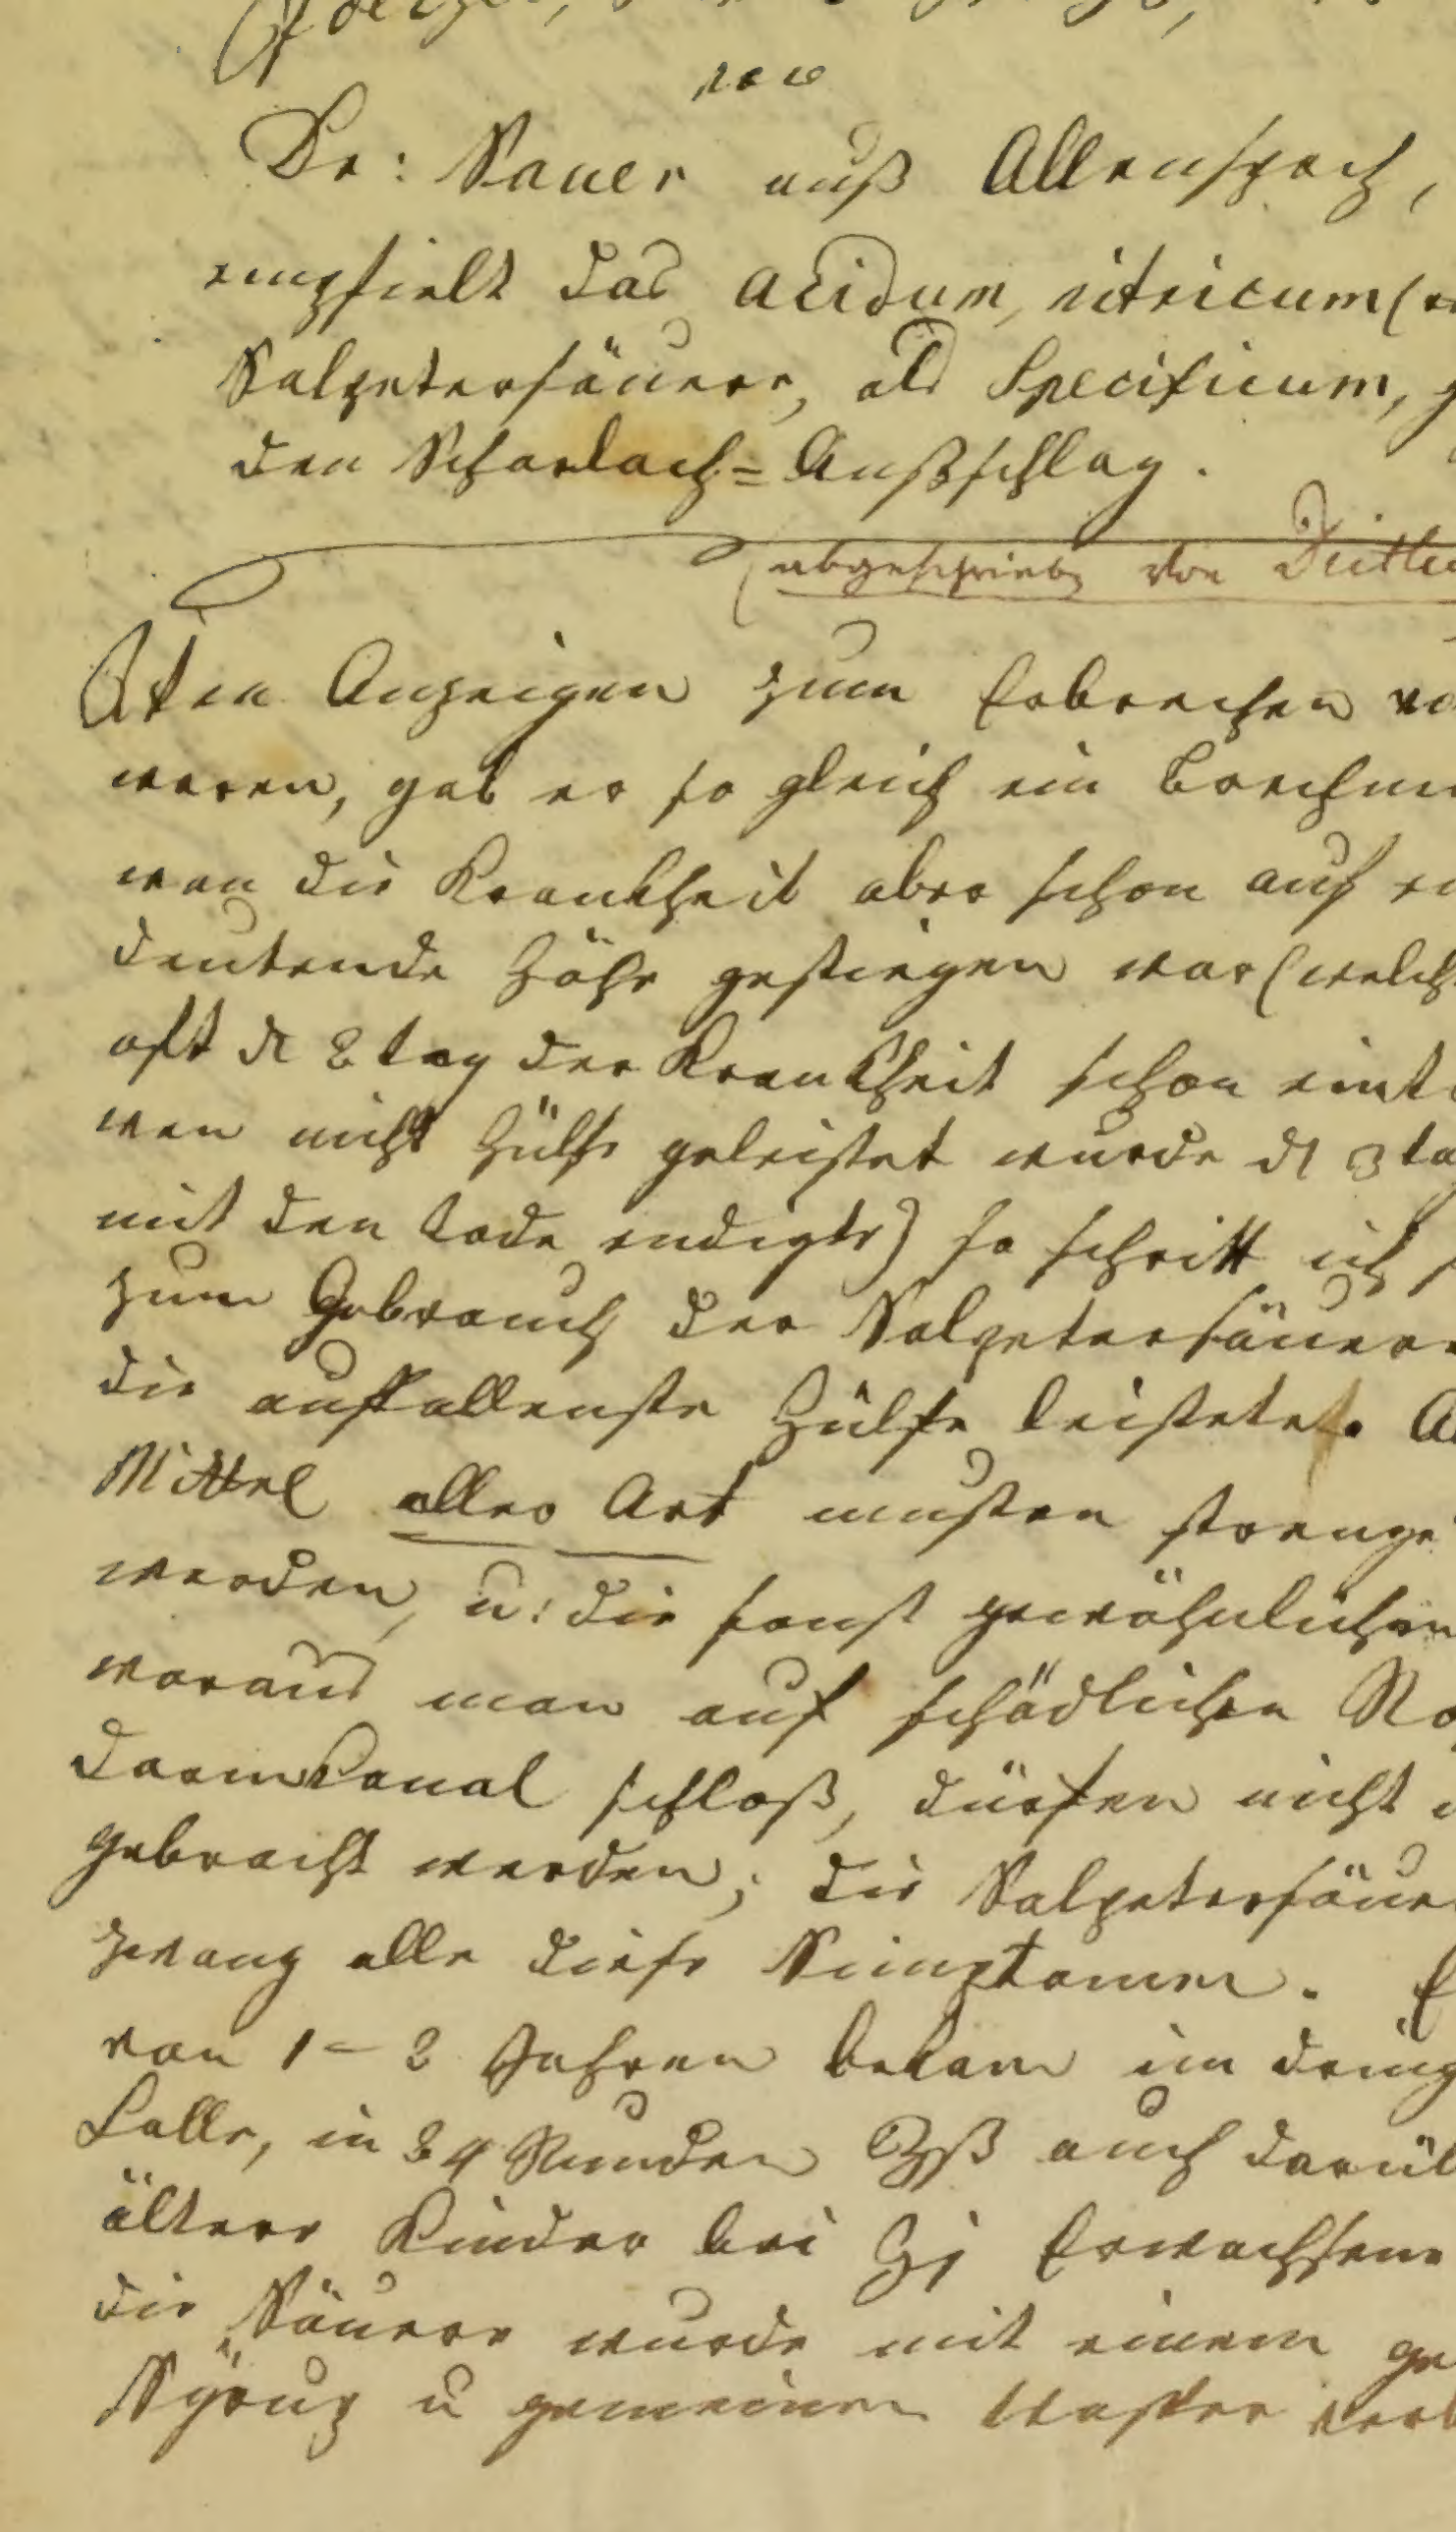 von
Dr: Sauer auß Allenspach,
empfielt das Acidum, nitricum (
Salpetersäuere, als Specificum, g
den Scharlach=Außschlag.
(abgeschrieben von
Anzeigen zum Erbrechen vo
waren, gab er so gleich ein Brechmi
wan die Krankheit aber schon auf ei
deutende Höhe gestiegen war (welch
oft d 2 tag der Krankheit schon eint
wen nicht Hülfe geleistet wurde d 3 ta
mit den Tode endigte) so schritt ich s
zum Gebrauch der Salpetersäuere
die auffallenste Hülfe leistete. A
Mittel aller Art musten strenge
werden, u: die sonst gewöhnlichen
woraus man auf schädlichen
Darmkanal schloß, dürfen nicht
gebracht werden; die Salpetersäue
zwang alle diese Simptomen. E
von 1-2 Jahren bekam im dring
Falle, in 24 Stunden ʒß auch darüb
ältere Kinder bei ʒj Erwachsene
die Säuere wurde mit einem ge
Syrup u gemeinen Wasser verb